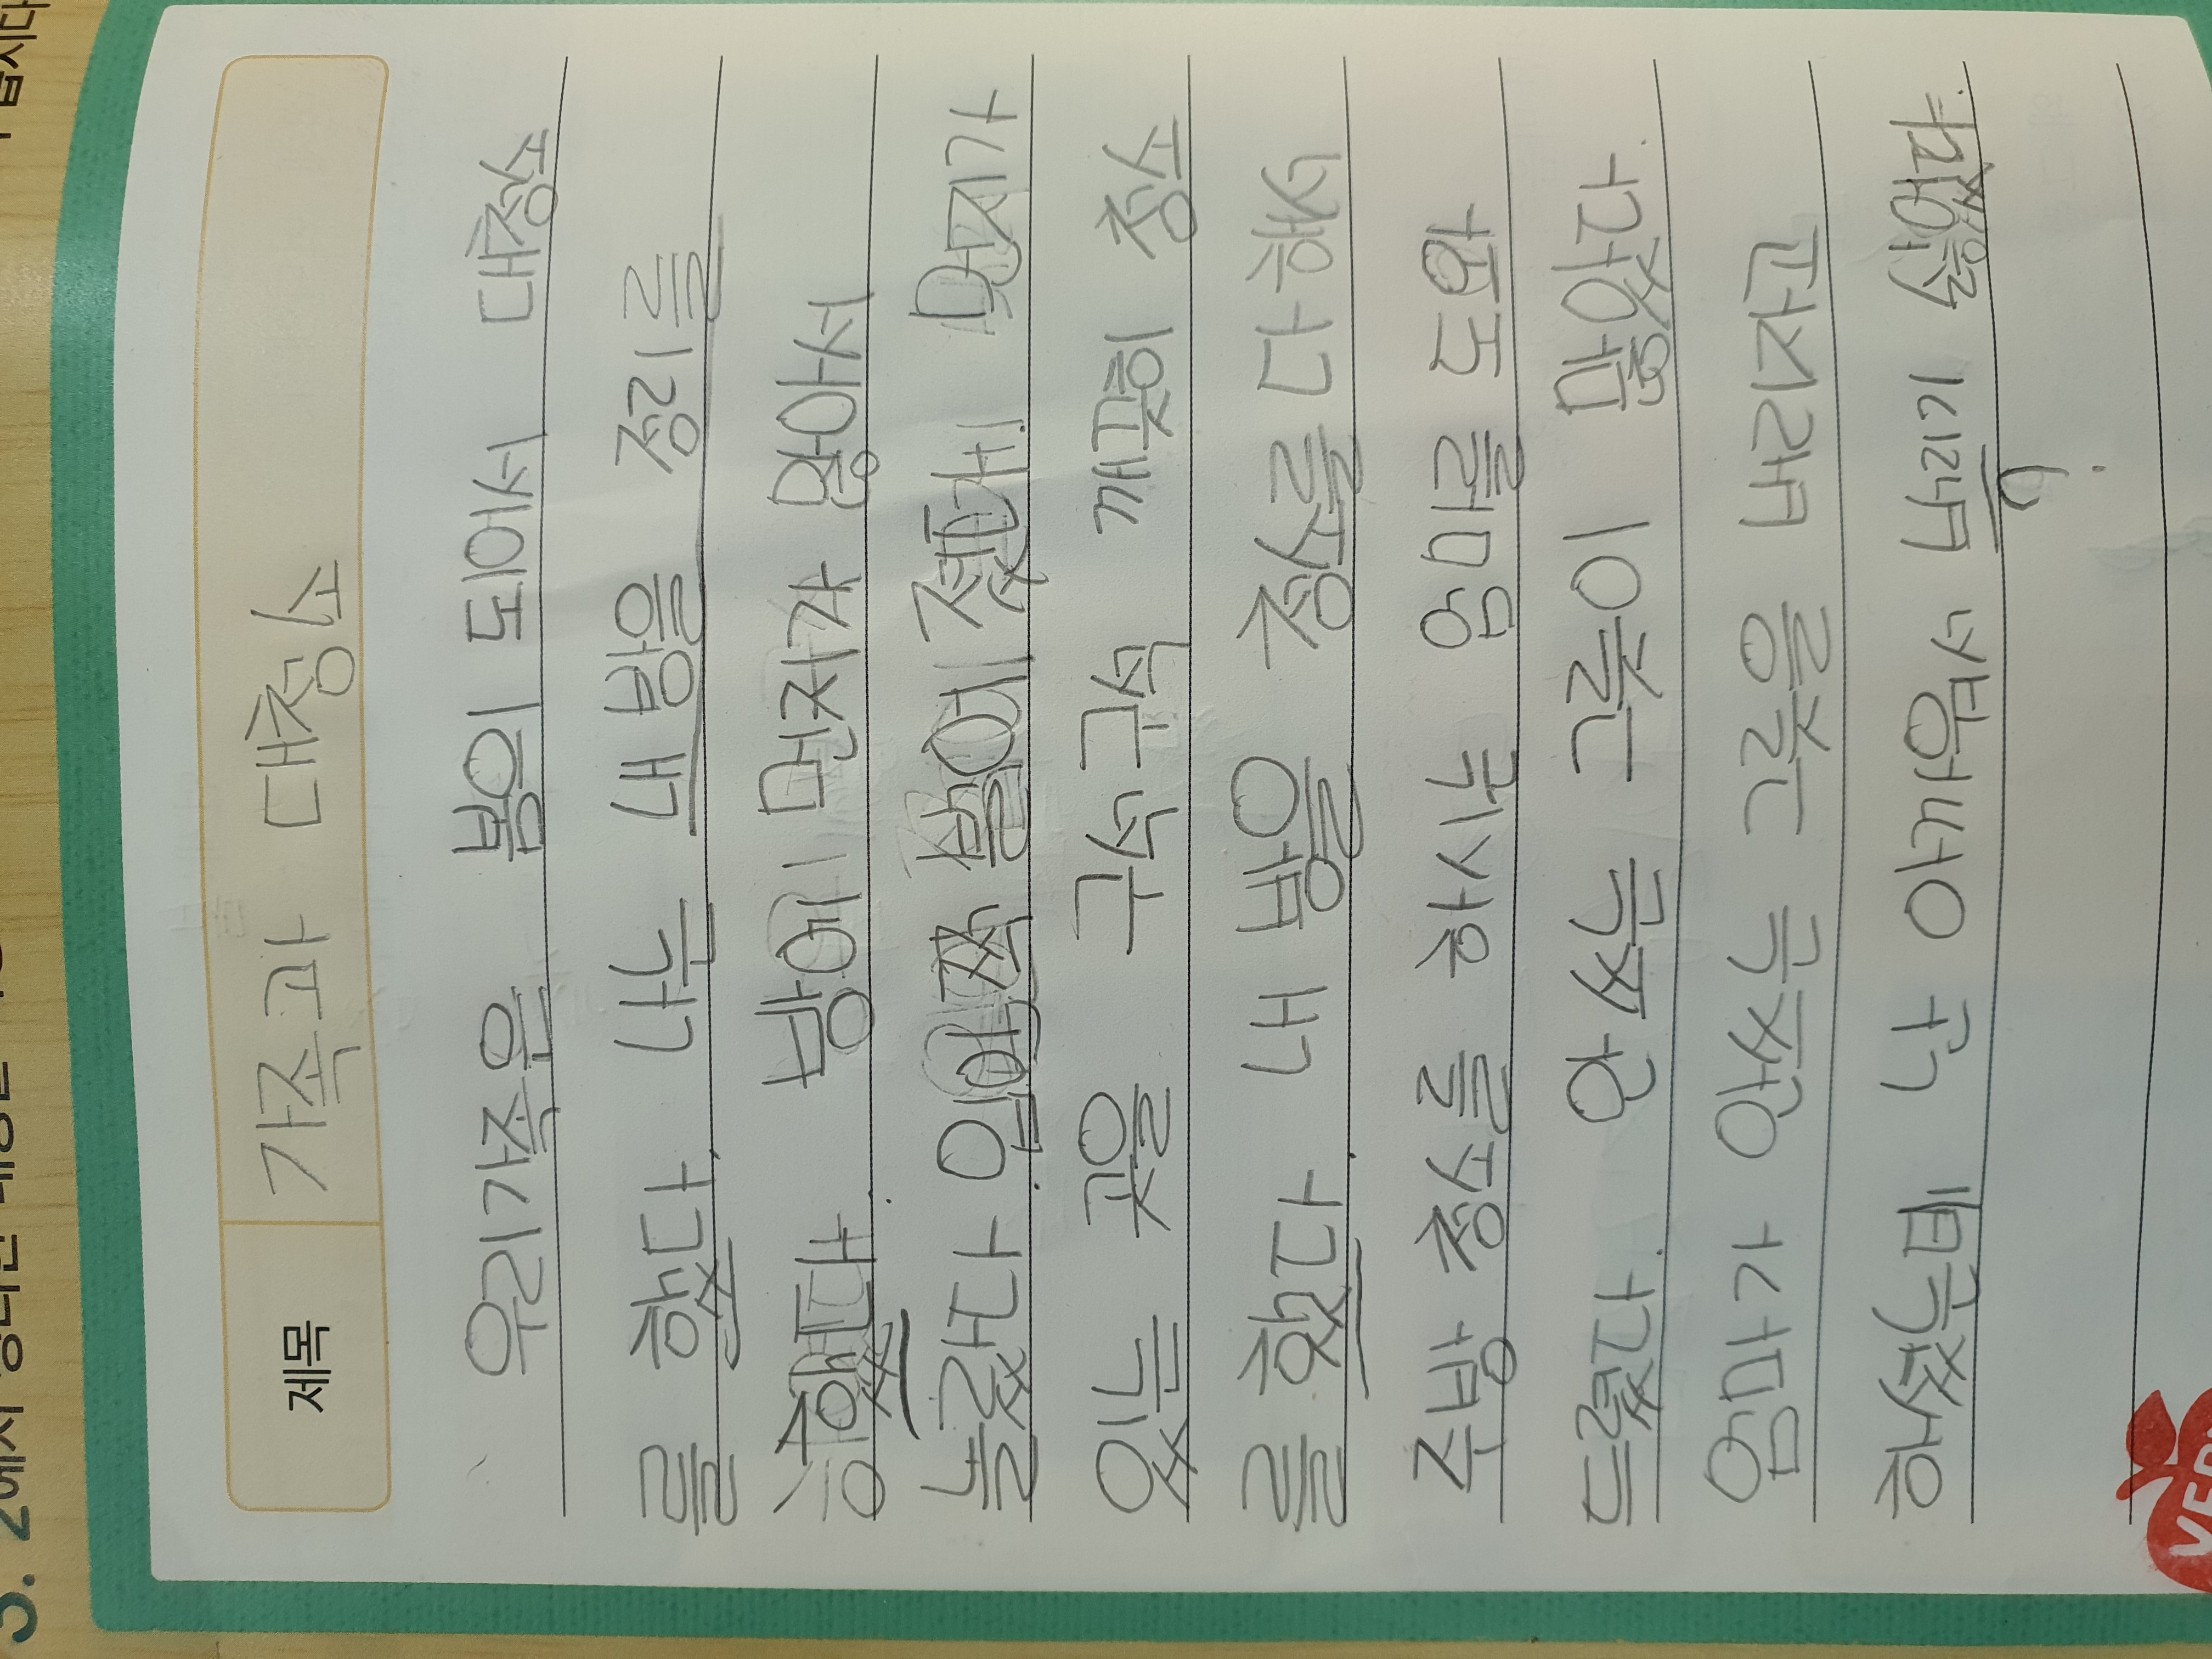 3. 2에서 정리한 내용을
습시다
제목 가족과 대청소
우리가족은 봄의 되어서 대청소
를 했다. 나는 내 방을 정리를
했다. 방에 먼지가 많아서
놀랐다. 입안쪽 벌어졌다! 먼지가
있는 곳을 구석구석 깨끗히 청소
를 했다. 내 방을 청소를 다 해서
주방 청소를 하시는 엄마를 도와
드렸다. 안 쓰는 그릇이 많았다.
엄마가 안쓰는 그릇을 버리자고
하셨는데 난 아까워서 버리기 싫었다.
?
VERY